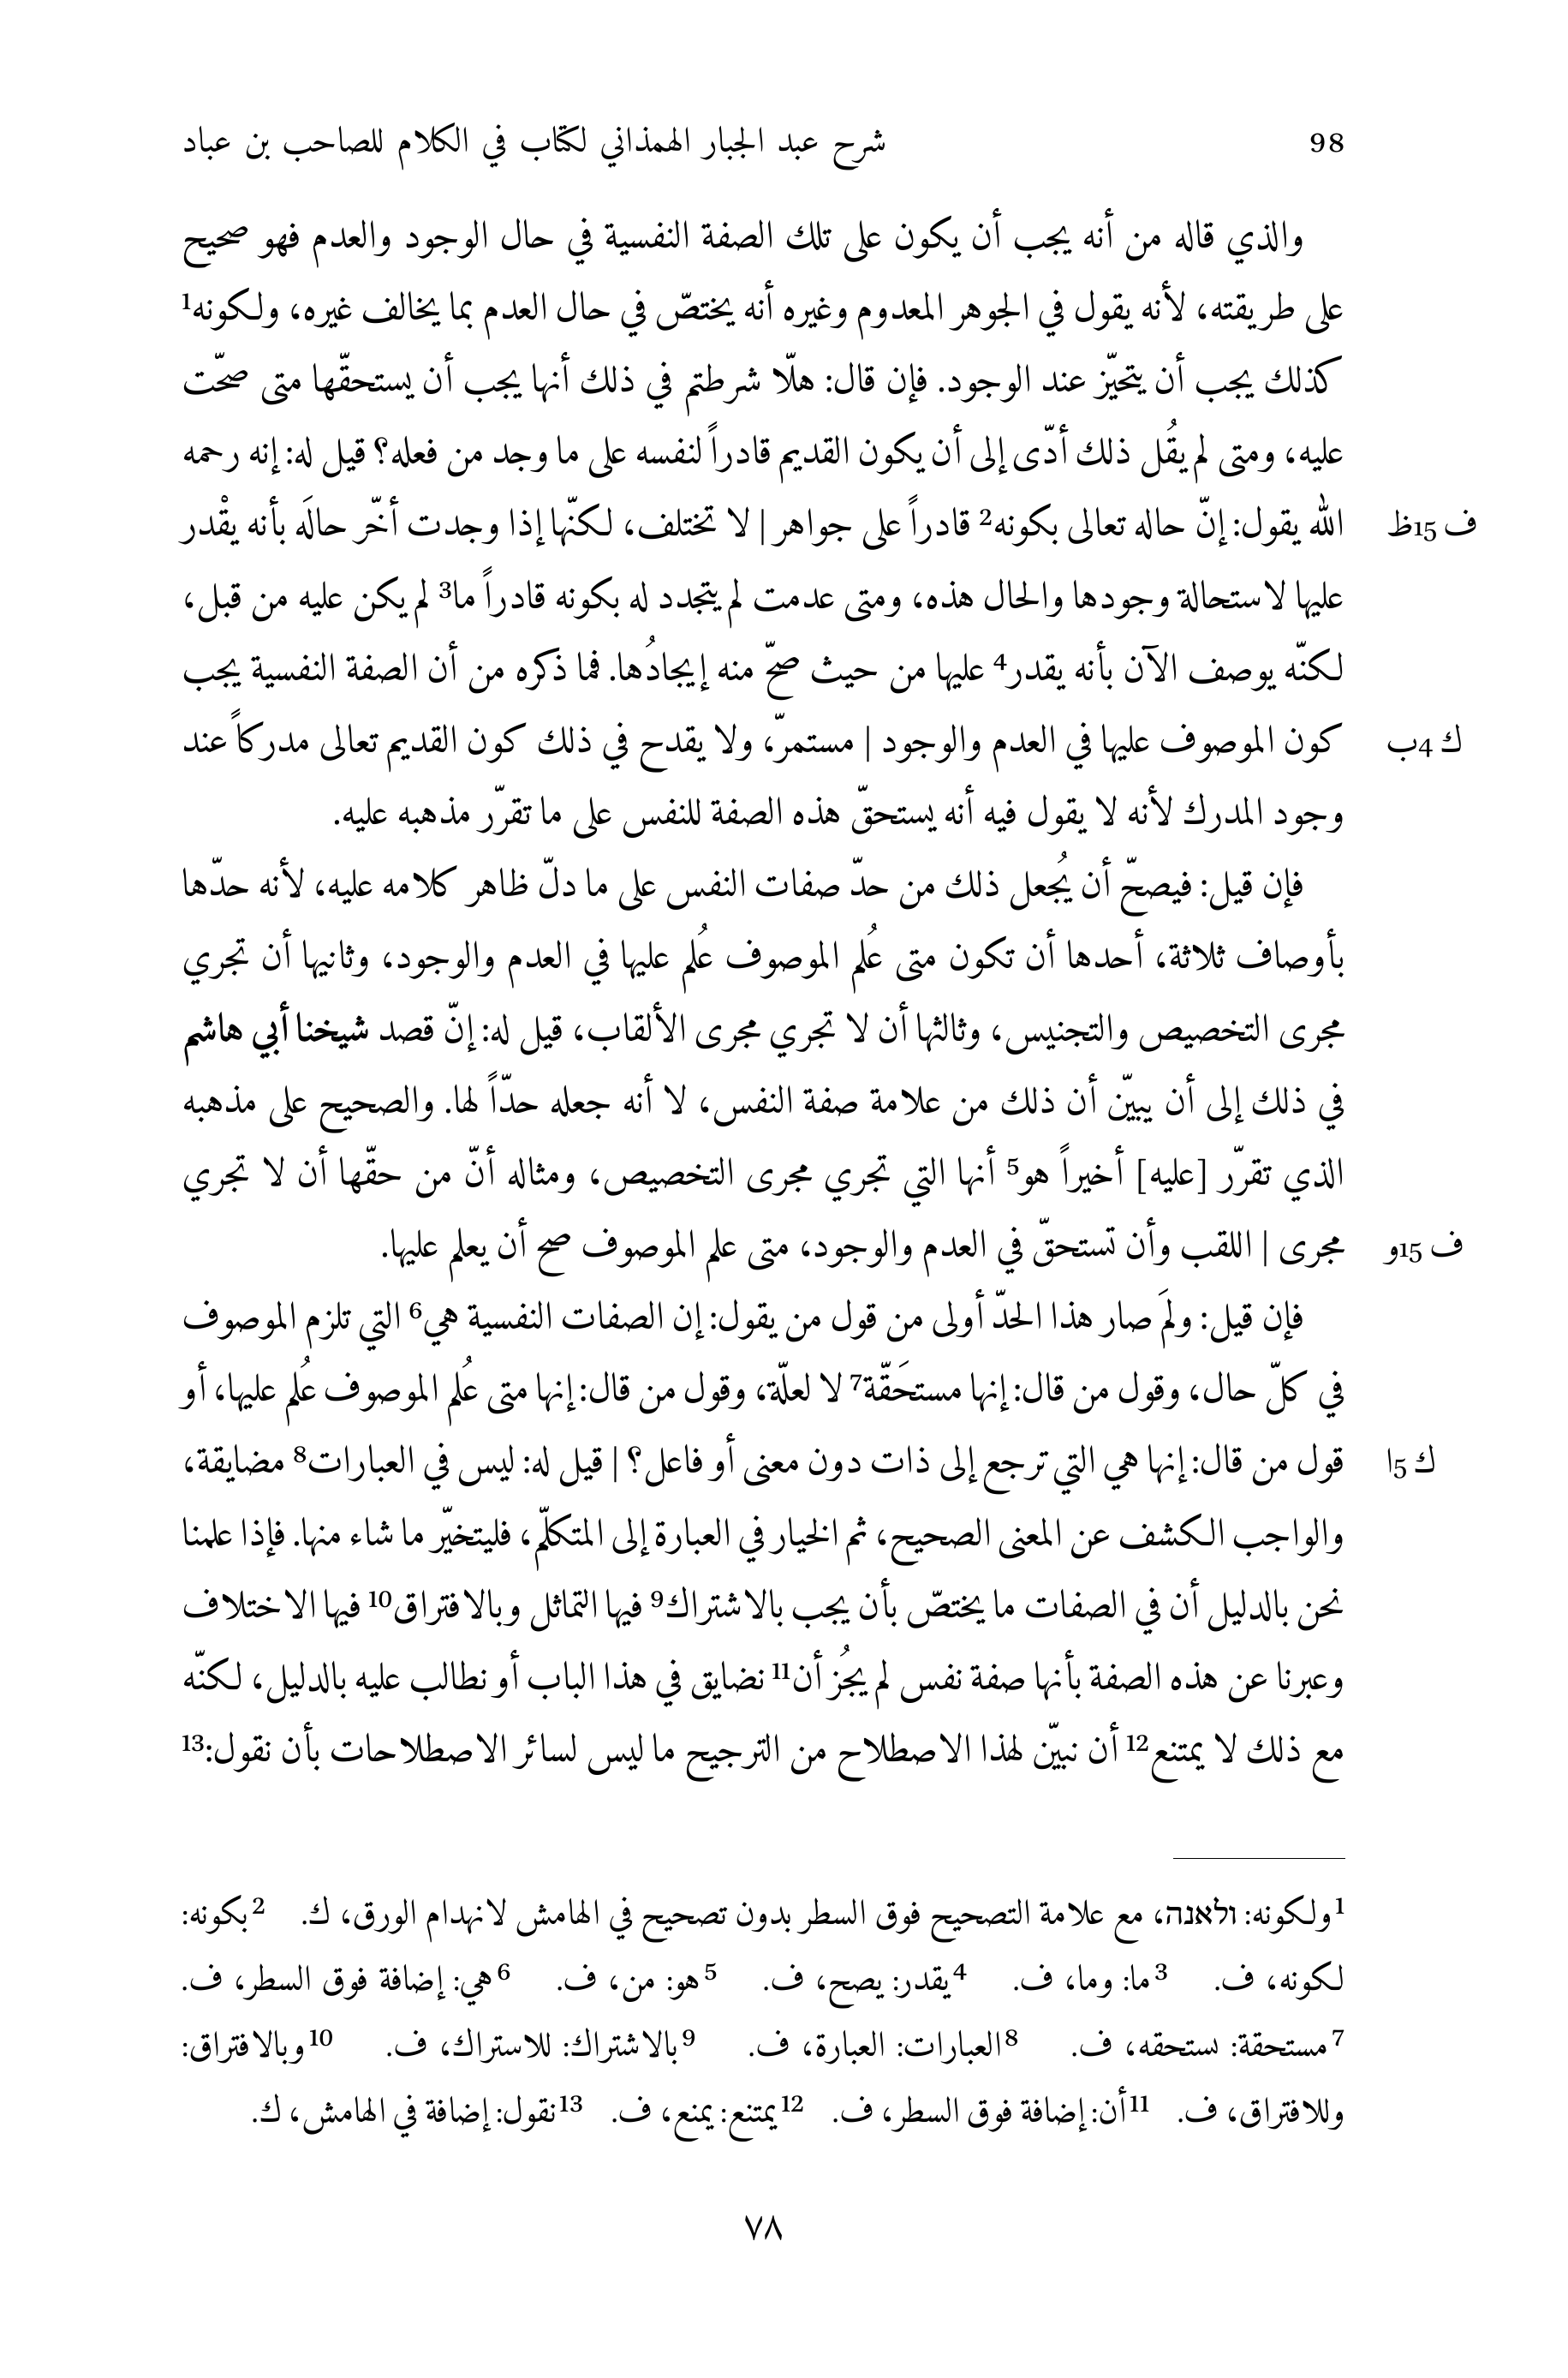 98 شرح عبد الجبار الهمذاني لكتاب في الكلام للصاحب بن عباد
والذي قاله من أنه يجب أن يكون على تلك الصفة النفسية في حال الوجود والعدم فهو صحيح
على طريقته، لأنه يقول في الجوهر المعدوم وغيره أنه يختصّ في حال العدم بما يخالف غيره، ولكونه1
كذلك يجب أن يتحيّز عند الوجود. فإن قال: هلّا شرطتم في ذلك أنها يجب أن يستحقّها متى صحّت
عليه، ومتى لم يقُل ذلك أدّى إلى أن يكون القديم قادراً لنفسه على ما وجد من فعله؟ قيل له: إنه رحمه
الله يقول: إنّ حاله تعالى بكونه2 قادراً على جواهر | لا تختلف، لكنّها إذا وجدت أخّر حالَه بأنه يقْدر ف 15ظ
عليها لاستحالة وجودها والحال هذه، ومتى عدمت لم يتجدد له بكونه قادراً ما3 لم يكن عليه من قبل،
لكنّه يوصف الآن بأنه يقدر4 عليها من حيث صحّ منه إيجادُها. فما ذكره من أن الصفة النفسية يجب
كون الموصوف عليها في العدم والوجود | مستمرّ، ولا يقدح في ذلك كون القديم تعالى مدركاً عند ك 4ب
وجود المدرك لأنه لا يقول فيه أنه يستحقّ هذه الصفة للنفس على ما تقرّر مذهبه عليه.
فإن قيل: فيصحّ أن يُجعل ذلك من حدّ صفات النفس على ما دلّ ظاهر كلامه عليه، لأنه حدّها
بأوصاف ثلاثة، أحدها أن تكون متى عُلم الموصوف عُلم عليها في العدم والوجود، وثانيها أن تجري
مجرى التخصيص والتجنيس، وثالثها أن لا تجري مجرى الألقاب، قيل له: إنّ قصد شيخنا أبي هاشم
في ذلك إلى أن يبيّن أن ذلك من علامة صفة النفس، لا أنه جعله حدّاً لها. والصحيح على مذهبه
الذي تقرّر [عليه] أخيراً هو5 أنها التي تجري مجرى التخصيص، ومثاله أنّ من حقّها أن لا تجري
مجرى | اللقب وأن تستحقّ في العدم والوجود، متى علم الموصوف صح أن يعلم عليها. ف 15و
فإن قيل: ولمَ صار هذا الحدّ أولى من قول من يقول: إن الصفات النفسية هي6 التي تلزم الموصوف
في كلّ حال، وقول من قال: إنها مستحَقّة7 لا لعلّة، وقول من قال: إنها متى عُلم الموصوف عُلم عليها، أو
قول من قال: إنها هي التي ترجع إلى ذات دون معنى أو فاعل؟ | قيل له: ليس في العبارات8 مضايقة، ك 5ا
والواجب الكشف عن المعنى الصحيح، ثم الخيار في العبارة إلى المتكلّم، فليتخيّر ما شاء منها. فإذا علمنا
نحن بالدليل أن في الصفات ما يختصّ بأن يجب بالاشتراك9 فيها التماثل وبالافتراق10 فيها الاختلاف
وعبرنا عن هذه الصفة بأنها صفة نفس لم يجُز أن11 نضايق في هذا الباب أو نطالب عليه بالدليل، لكنّه
مع ذلك لا يمتنع12 أن نبيّن لهذا الاصطلاح من الترجيح ما ليس لسائر الاصطلاحات بأن نقول:13
1ولكونه: ולאנה، مع علامة التصحيح فوق السطر بدون تصحيح في الهامش لانهدام الورق، ك. 2بكونه:
لكونه، ف. 3ما: وما، ف. 4يقدر: يصح، ف. 5هو: من، ف. 6هي: إضافة فوق السطر، ف.
7مستحقة: ستحقه، ف. 8العبارات: العبارة، ف. 9بالاشتراك: للاستراك، ف. 10وبالافتراق:
وللافتراق، ف. 11أن: إضافة فوق السطر، ف. 12يمتنع: يمنع، ف. 13نقول: إضافة في الهامش، ك.
٧٨